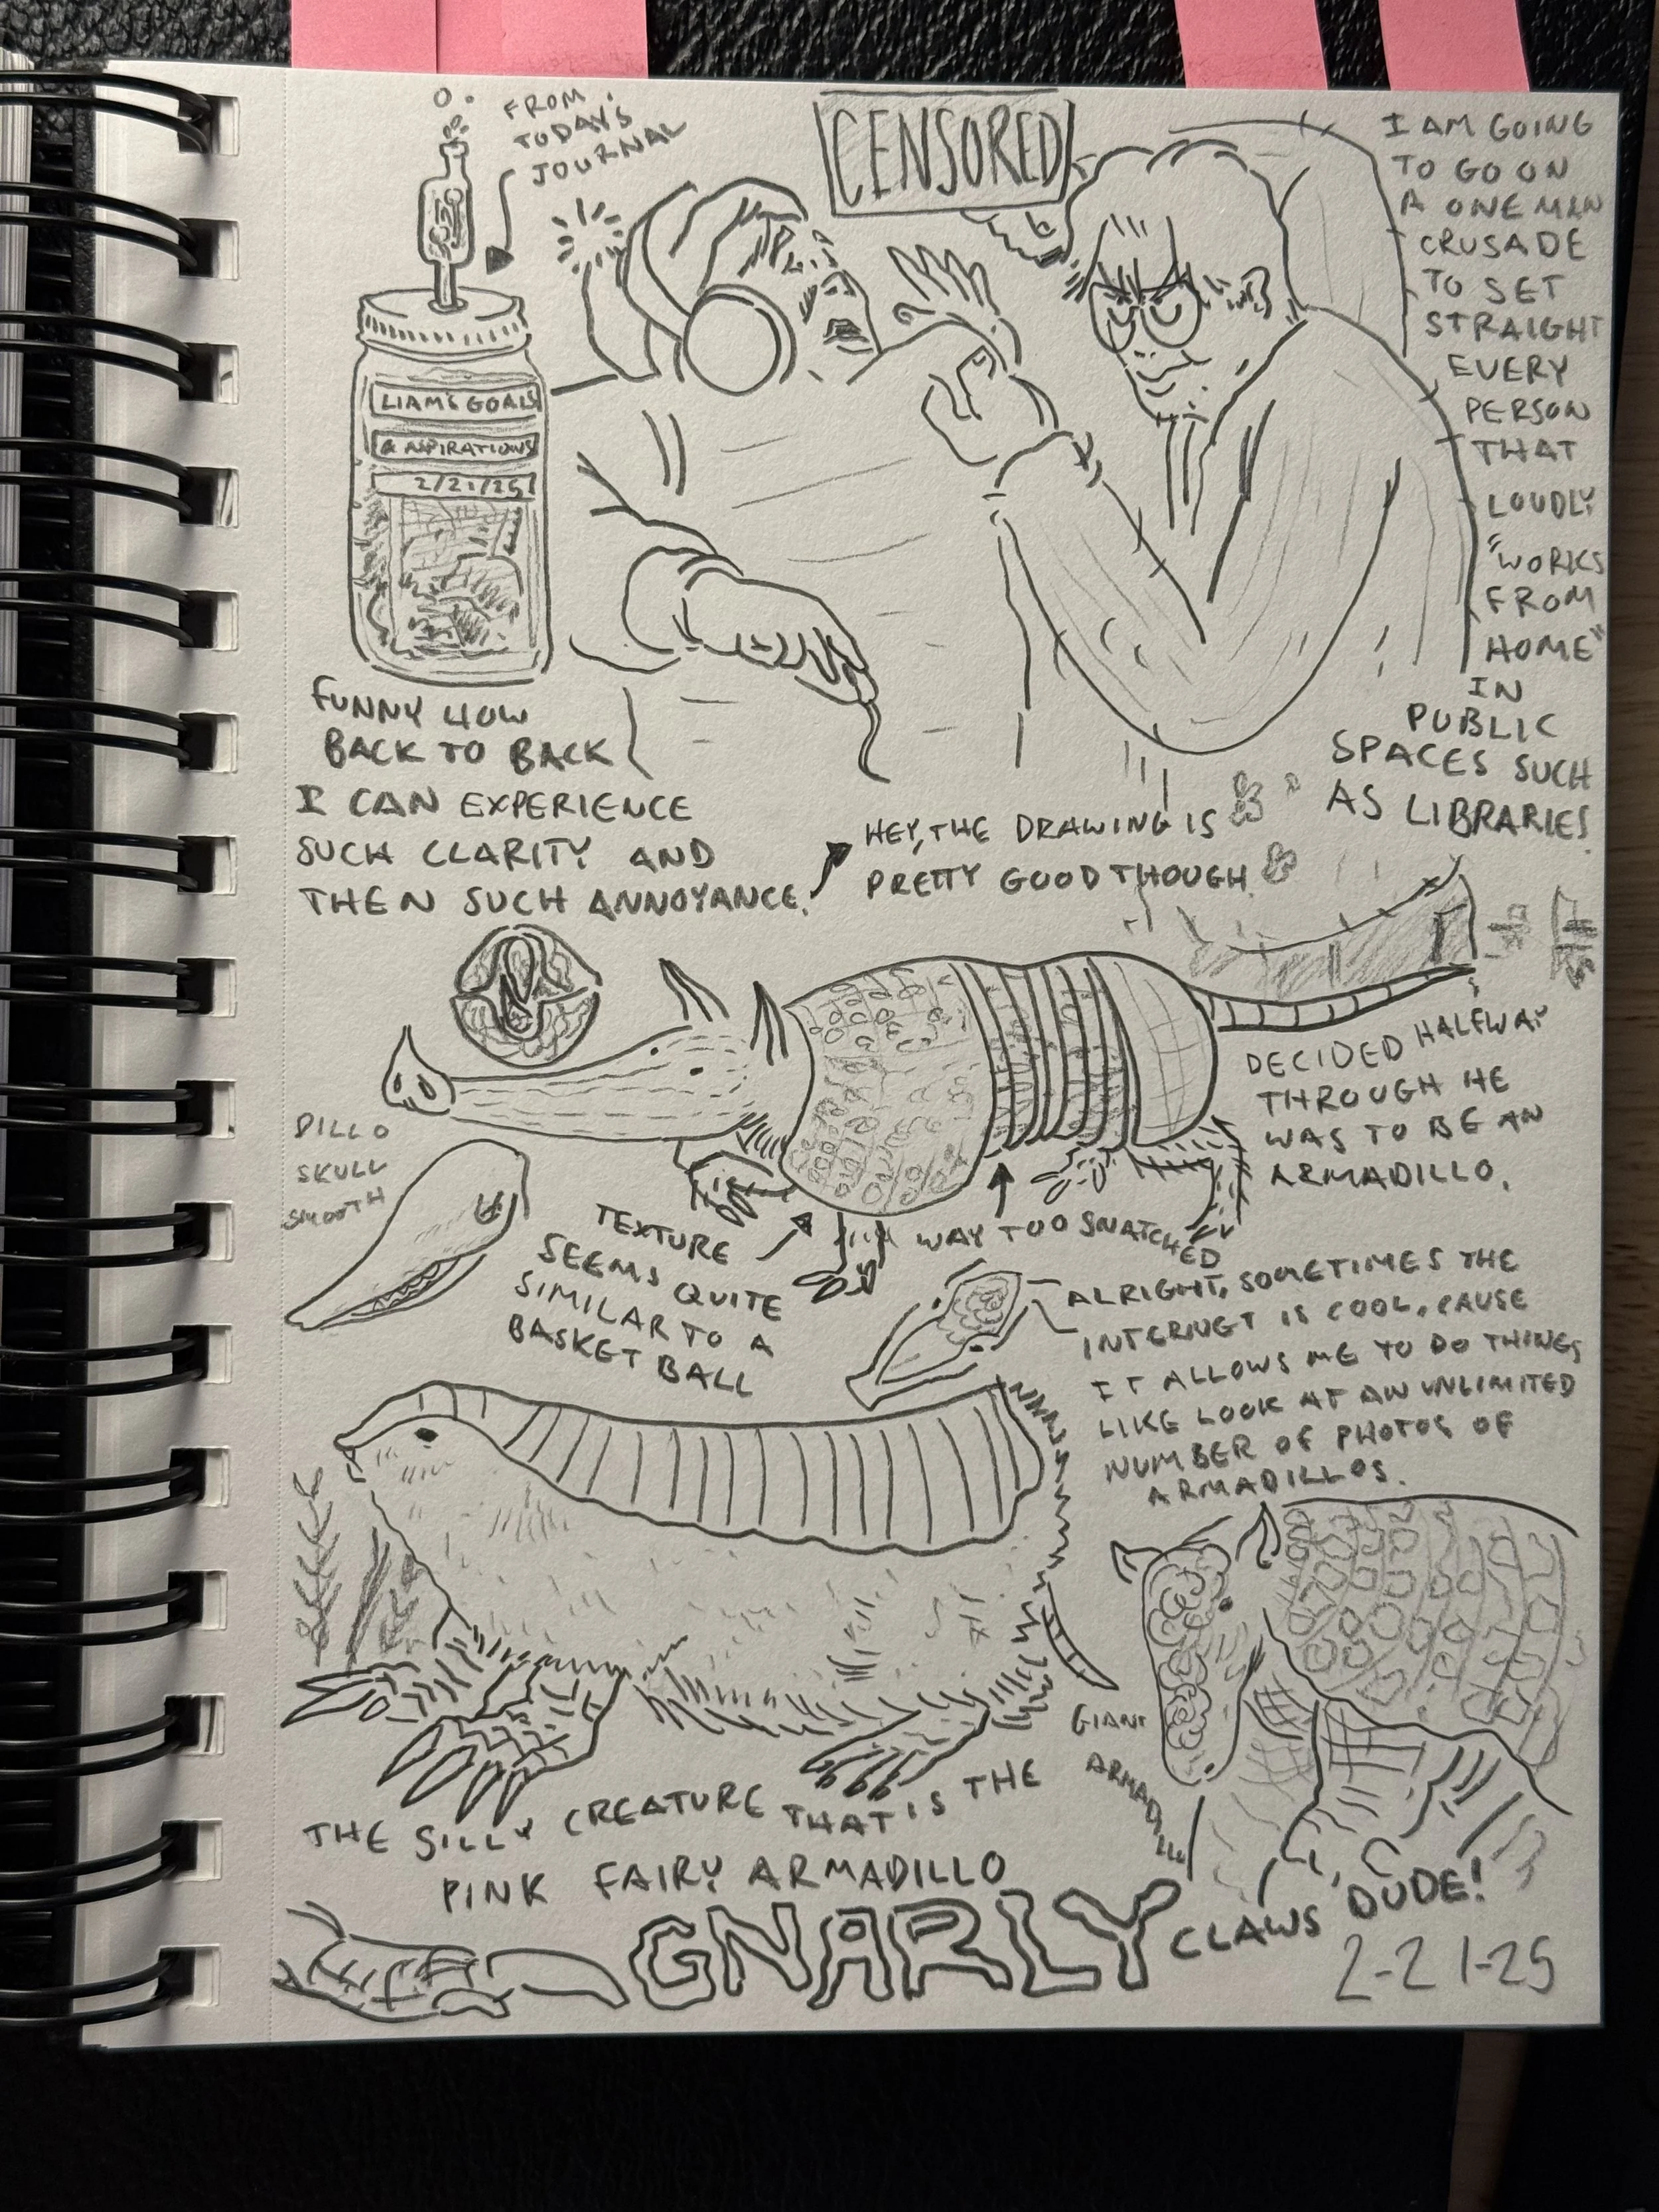 FROM
TODAY'S
JOURNAL
LIAM'S GOALS
& ASPIRATIONS
2/21/25
CENSORED
I AM GOING
TO GO ON
A ONE MAN
CRUSADE
TO SET
STRAIGHT
EVERY
PERSON
THAT
LOUDLY
"WORKS
FROM
HOME"
IN
PUBLIC
SPACES SUCH
AS LIBRARIES.
FUNNY HOW
BACK TO BACK
I CAN EXPERIENCE
SUCH CLARITY AND
THEN SUCH ANNOYANCE.
HEY, THE DRAWING IS
PRETTY GOOD THOUGH
DECIDED HALFWAY
THROUGH HE
WAS TO BE AN
ARMADILLO.
DILLO
SKULL
SMOOTH
TEXTURE
SEEMS QUITE
SIMILAR TO A
BASKET BALL
WAY TOO SNATCHED
ALRIGHT, SOMETIMES THE
INTERNET IS COOL, CAUSE
IT ALLOWS ME TO DO THINGS
LIKE LOOK AT AN UNLIMITED
NUMBER OF PHOTOS OF
ARMADILLOS.
GIANT
ARMADILLO
THE SILLY CREATURE THAT IS THE
PINK FAIRY ARMADILLO
GNARLY CLAWS DUDE!
2-21-25